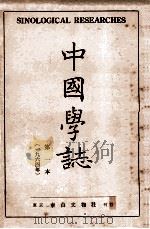 SINOLOGICAL RESEARCHES
中國學誌
第一本
(一九六四年)
東京 泰山文物社 刊行